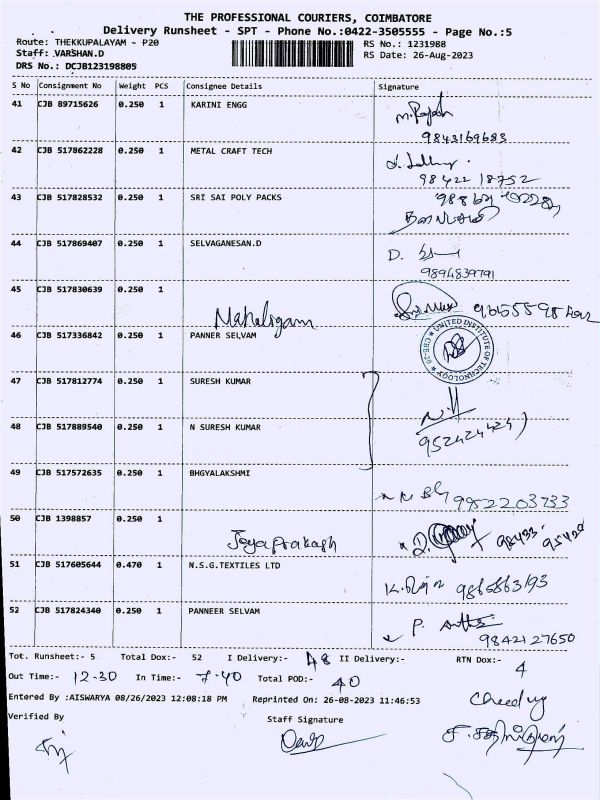 THE PROFESSIONAL COURIERS, COIMBATORE
Delivery Runsheet - SPT - Phone No.:0422-3505555 - Page No.:5
Route: THEKKUPALAYAM - P20
RS No.: 1231988
Staff: VARSHAN.D
RS Date: 26-Aug-2023
DRS No.: DCJB123198805
S No Consignment No Weight PCS Consignee Details Signature
41 CJB 89715626 0.250 1 KARINI ENGG
9843169683
42 CJB 517862228 0.250 1 METAL CRAFT TECH
98422 18752
43 CJB 517828532 0.250 1 SRI SAI POLY PACKS
44 CJB 517869407 0.250 1 SELVAGANESAN.D
9894839791
45 CJB 517830639 0.250 1
Mahaligam
46 CJB 517336842 0.250 1 PANNER SELVAM
UNITED INSTITUTE OF TECHNOLOGY
47 CJB 517812774 0.250 1 SURESH KUMAR
48 CJB 517889540 0.250 1 N SURESH KUMAR
9524244241
49 CJB 517572635 0.250 1 BHGYALAKSHMI
9952203733
50 CJB 1398857 0.250 1
Jeyaprakash
51 CJB 517605644 0.470 1 N.S.G.TEXTILES LTD
52 CJB 517824340 0.250 1 PANNEER SELVAM
9842127650
Tot. Runsheet:- 5 Total Dox:- 52 I Delivery:- 48 II Delivery:- RTN Dox:- 4
Out Time:- 12-30 In Time:- 7-40 Total POD:- 40
Entered By :AISWARYA 08/26/2023 12:08:18 PM Reprinted On: 26-08-2023 11:46:53
Verified By Staff Signature